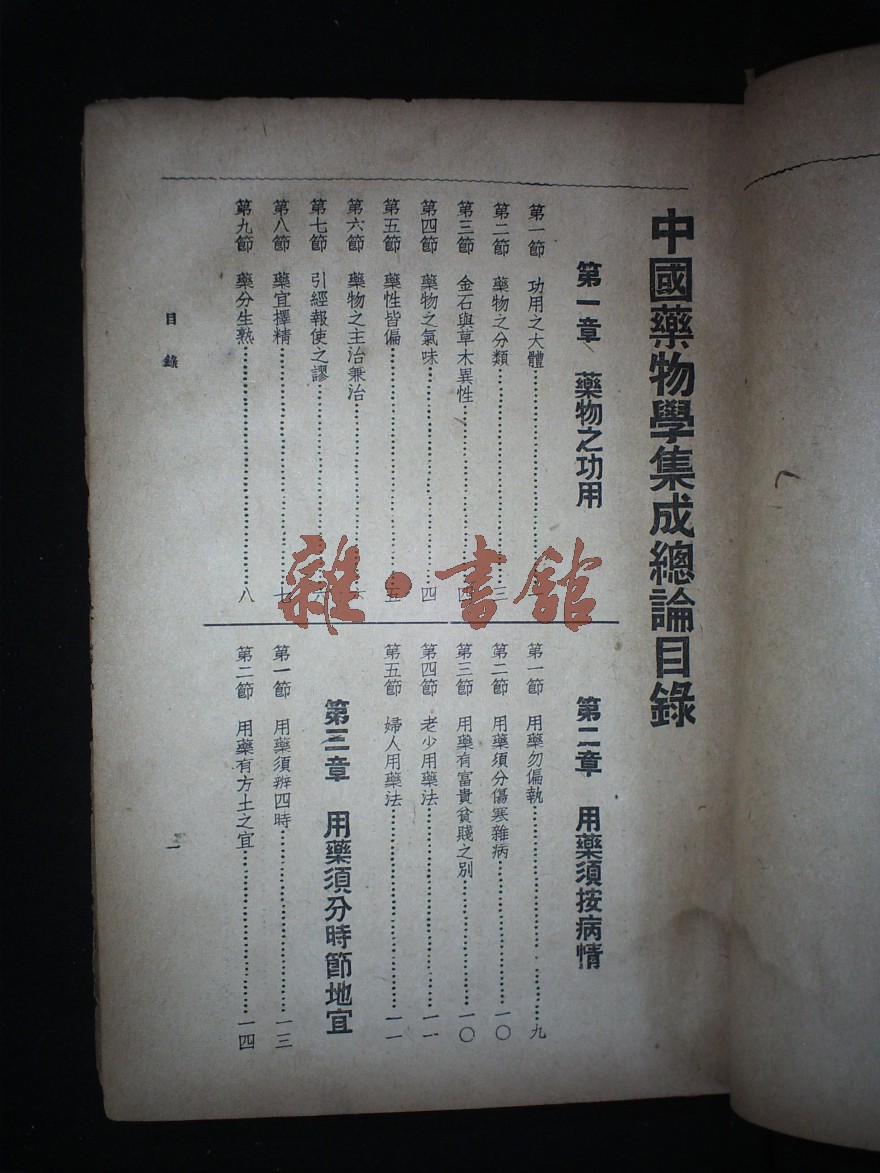 中國藥物學集成總論目錄
第一章 藥物之功用
第一節 功用之大體
第二節 藥物之分類……三
第三節 金石與草木異性……四
第四節 藥物之氣味……四
第五節 藥性皆偏……五
第六節 藥物之主治兼治
第七節 引經報使之謬
第八節 藥宜擇精……七
第九節 藥分生熟……八
第二章 用藥須按病情
第一節 用藥勿偏執……九
第二節 用藥須分傷寒雜病……一〇
第三節 用藥有富貴貧賤之別……一〇
第四節 老少用藥法……一一
第五節 婦人用藥法……一一
第三章 用藥須分時節地宜
第一節 用藥須辨四時……一三
第二節 用藥有方土之宜……一四
目錄
一
雜·書館